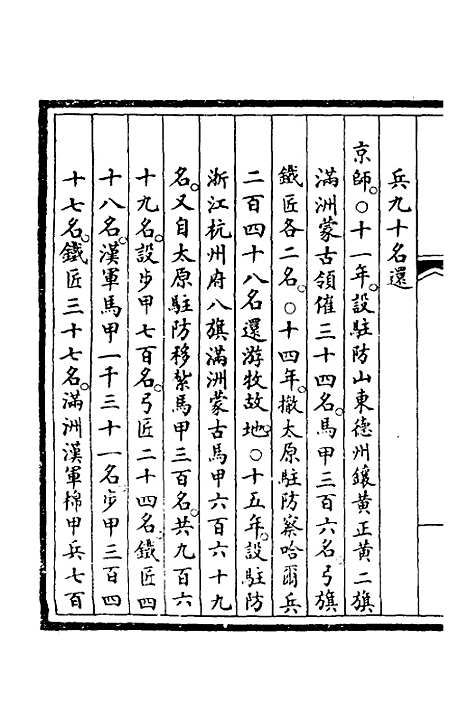 兵九十名還
京師。○十一年。設駐防山東德州鑲黃正黃二旗
滿洲蒙古領催三十四名。馬甲三百六名弓旗
鐵匠各二名。○十四年。撤太原駐防察哈爾兵
二百四十八名還游牧故地。○十五年。設駐防
浙江杭州府八旗滿洲蒙古馬甲六百六十九
名。又自太原駐防移紮馬甲三百名。共九百六
十九名。設步甲七百名。弓匠二十四名鐵匠四
十八名。漢軍馬甲一千三十一名步甲三百四
十七名。鐵匠三十七名。滿洲漢軍棉甲兵七百